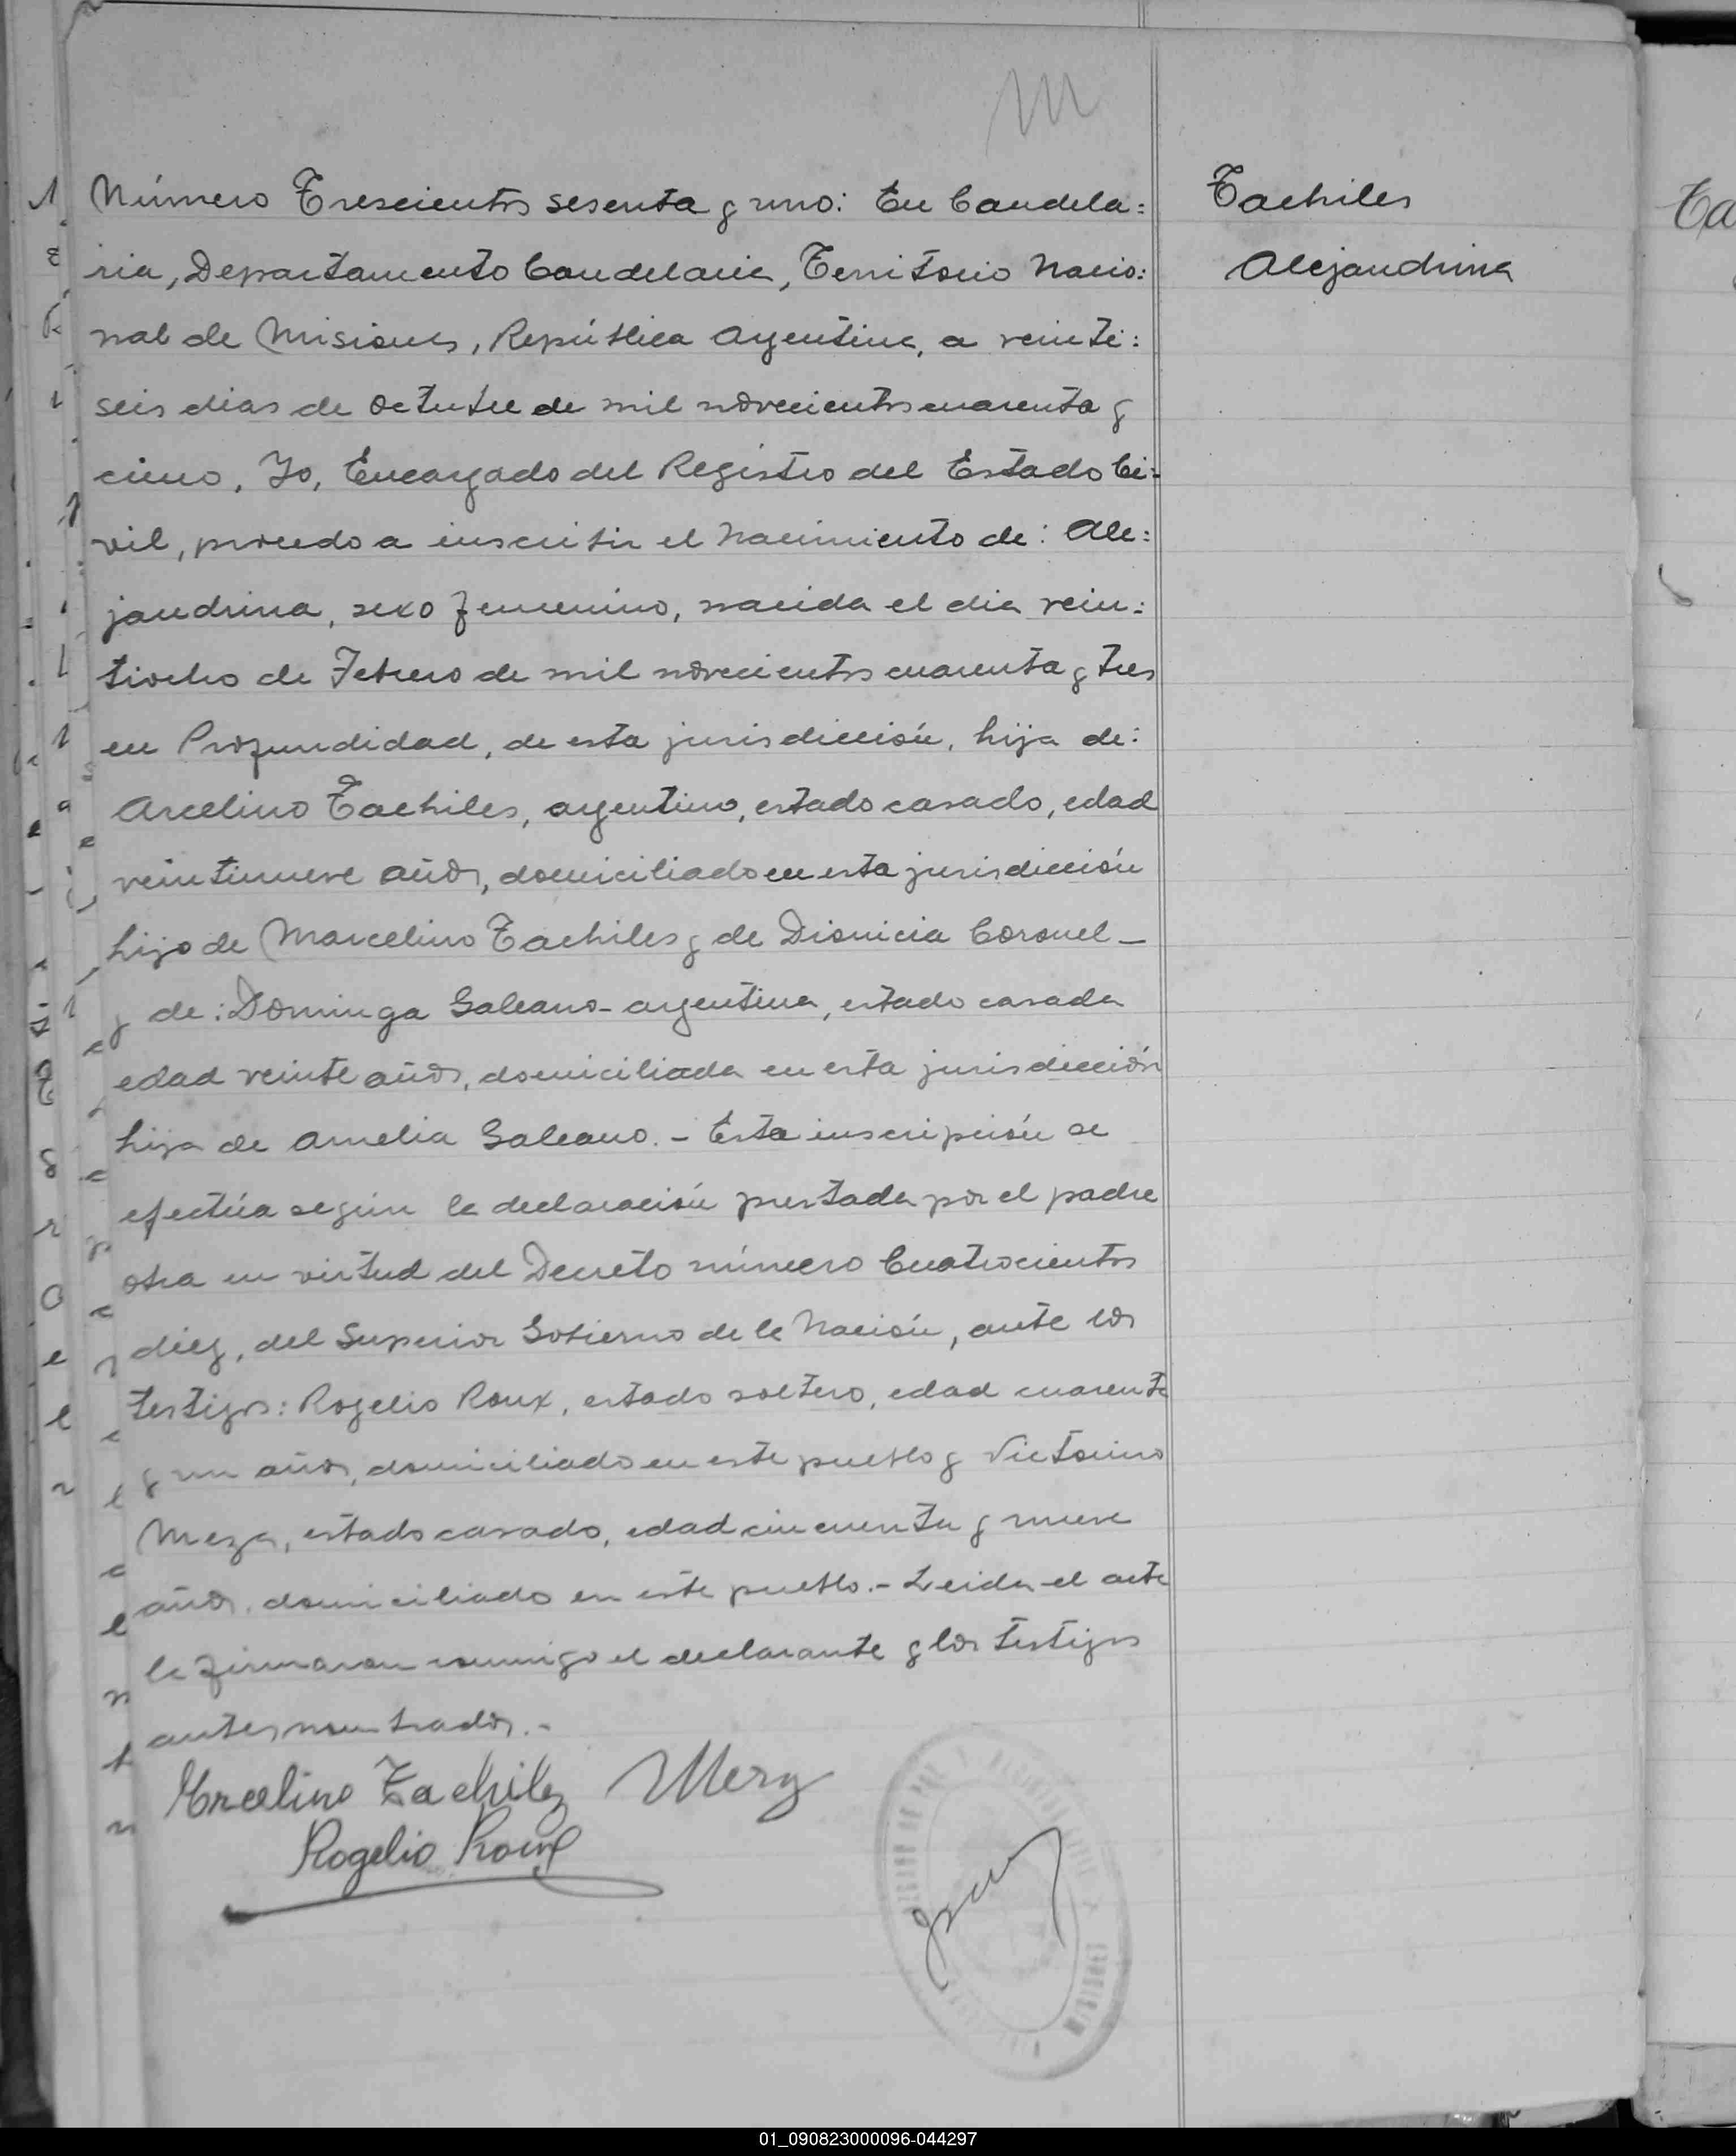 Número Trescientos sesenta y uno: En Candela:
ria, Departamento Candelaria, Territorio Nacio:
nal de Misiones, República Argentina, a veinti:
seis dias de octubre de mil novecientos cuarenta y
cinco, Yo, Encargado del Registro del Estado Ci-
vil, procedo a inscribir el nacimiento de: Ale:
jandrina, sexo femenino, nacida el dia vein:
tiocho de Febrero de mil novecientos cuarenta y tres
en Profundidad, de esta jurisdicción, hija de:
Arcelino Tachiles, argentino, estado casado, edad
veintinueve años, domiciliado en esta jurisdicción
hijo de Marcelino Tachiles y de Dionicia Coronel -
y de: Dominga Galeano - argentina, estado casada
edad veinte años, domiciliada en esta jurisdicción
hija de Amelia Galeano. - Esta inscripción se
efectúa según la declaración prestada por el padre
en virtud del Decreto número Cuatrocientos
diez, del Superior Gobierno de la Nación, ante los
testigos: Rogelio Roux, estado soltero, edad cuarenta
y un años, domiciliado en este pueblo y Victorino
Meza, estado casado, edad cincuenta y nueve
años, domiciliado en este pueblo. - Leida el acta
la firmaron conmigo el declarante y los testigos
antes nombrados. -
Arcelino Tachilez
Rogelio Roux
Tachiles
Alejandrina
Ta
MISIONES
01_090823000096-044297